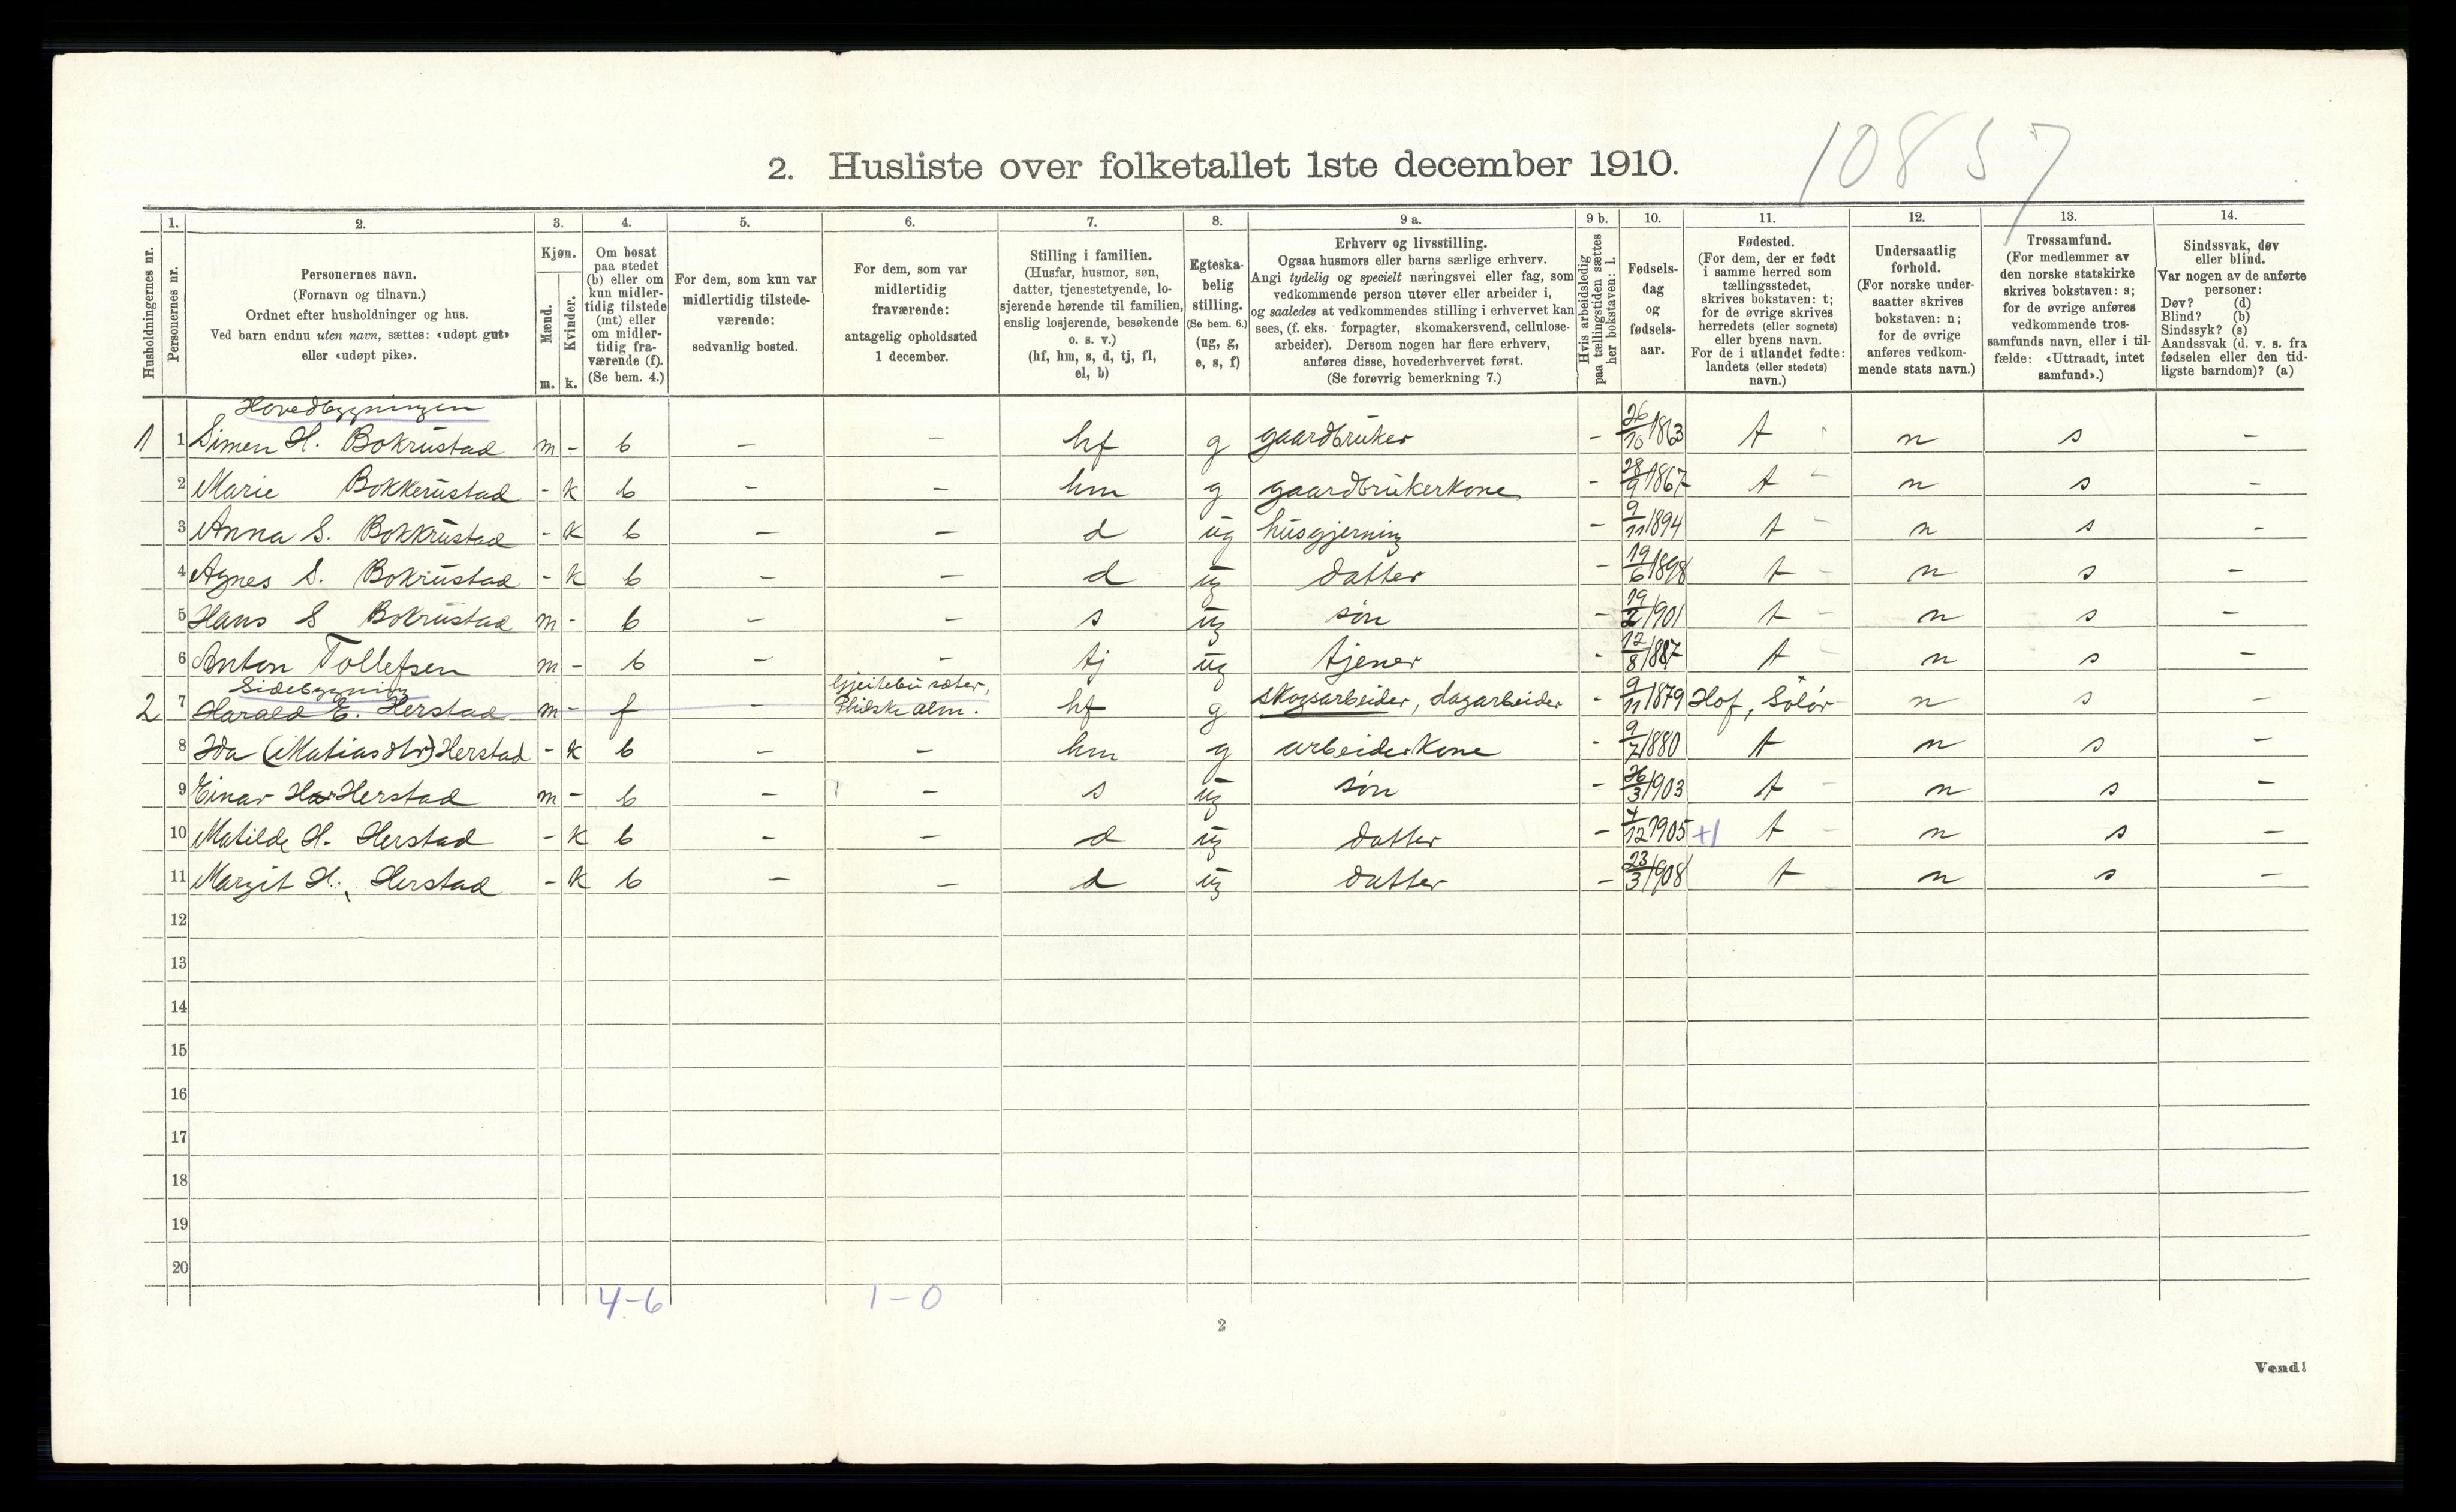 10857
2. Husliste over folketallet 1ste december 1910.
Husholdningernes nr.
1.
Personernes nr.
2.
Personernes navn.
(Fornavn og tilnavn.)
Ordnet efter husholdninger og hus.
Ved barn endnu uten navn, sættes: «udøpt gut»
eller «udøpt pike».
3.
Kjøn.
Mænd.
Kvinder.
m. k.
4.
Om bosat
paa stedet
(b) eller om
kun midler-
tidig tilstede
(mt) eller
om midler-
tidig fra-
værende (f).
(Se bem. 4.)
5.
For dem, som kun var
midlertidig tilstede-
værende:
sedvanlig bosted.
6.
For dem, som var
midlertidig
fraværende:
antagelig opholdssted
1 december.
7.
Stilling i familien.
(Husfar, husmor, søn,
datter, tjenestetyende, lo-
sjerende hørende til familien,
enslig losjerende, besøkende
o. s. v.)
(hf, hm, s, d, tj, fl,
el, b)
8.
Egteska-
belig
stilling.
(Se bem. 6.)
(ug, g,
e, s, f)
9 a.
Erhverv og livsstilling.
Ogsaa husmors eller barns særlige erhverv.
Angi tydelig og specielt næringsvei eller fag, som
vedkommende person utøver eller arbeider i,
og saaledes at vedkommendes stilling i erhvervet kan
sees, (f. eks. forpagter, skomakersvend, cellulose-
arbeider). Dersom nogen har flere erhverv,
anføres disse, hovederhvervet først.
(Se forøvrig bemerkning 7.)
9 b.
Hvis arbeidsledig
paa tællingstiden sættes
her bokstaven: l.
10.
Fødsels-
dag
og
fødsels-
aar.
11.
Fødested.
(For dem, der er født
i samme herred som
tællingsstedet,
skrives bokstaven: t;
for de øvrige skrives
herredets (eller sognets)
eller byens navn.
For de i utlandet fødte:
landets (eller stedets)
navn.)
12.
Undersaatlig
forhold.
(For norske under-
saatter skrives
bokstaven: n;
for de øvrige
anføres vedkom-
mende stats navn.)
13.
Trossamfund.
(For medlemmer av
den norske statskirke
skrives bokstaven: s;
for de øvrige anføres
vedkommende tros-
samfunds navn, eller i til-
fælde: «Uttraadt, intet
samfund».)
14.
Sindssvak, døv
eller blind.
Var nogen av de anførte
personer:
Døv? (d)
Blind? (b)
Sindssyk? (s)
Aandssvak (d. v. s. fra
fødselen eller den tid-
ligste barndom)? (a)
Hovedbygningen
1 1 Simen H. Bokrustad m - b - - hf g gaardbruker - 26/10 1863 t n s -
2 Marie Bokkerustad - k b - - hm g gaardbrukerkone - 28/9 1867 t - n s -
3 Anna S. Bokkrustad - k b - - d ug husgjerning - 9/11 1894 t - n s -
4 Agnes S. Bokrustad - k b - - d ug datter - 19/6 1898 t - n s -
5 Hans S Bokrustad m - b - - s ug søn - 19/2 1901 t - n s -
6 Anton Tollefsen m - b - - tj ug tjener - 12/8 1887 t - n s -
Sidebygning
2 7 Harald E. Herstad m - f - Gjeitebu sæter, alm. hf g skogsarbeider, dagarbeider - 9/11 1879 Hof, Solør n s -
8 Ida (Matiasdtr) Herstad - k b - - hm g arbeiderkone - 9/7 1880 t n s -
9 Einar Har Herstad m - b - - s ug søn - 26/3 1903 t - n s -
10 Matilde H. Herstad - k b - - d ug datter - 4/12 1905 +1 t - n s -
11 Margit H. Herstad - k b - - d ug datter - 23/3 1908 t - n s -
12
13
14
15
16
17
18
19
20
4-6 1-0
2
Vend!